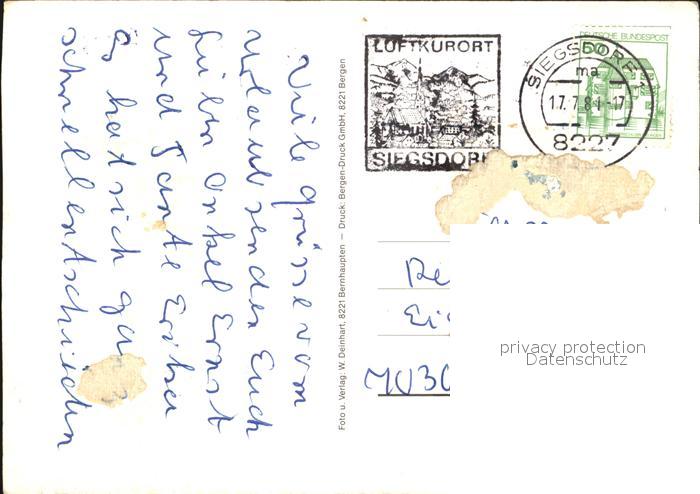 Viele Grüsse vom
Urlaub senden Euch
Onkel Ernst
und Tante
Es hat sich ganz
schnell entschieden
Foto u. Verlag: W. Deinhart, 8221 Bernhaupten – Druck: Bergen-Druck GmbH, 8221 Bergen
LUFTKURORT
SIEGSDORF
DEUTSCHE BUNDESPOST
50
SIEGSDORF
ma
17.7.81-17
8227
privacy protection
Datenschutz